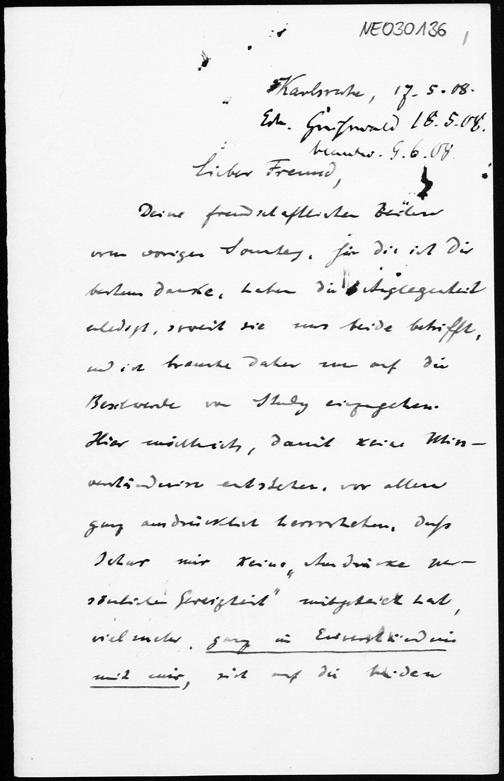 NE030136
Karlsruhe, 17.5.08.
Greifswald 18.5.08.
beantw. 9.6.08.
Lieber Freund,
Deine freundschaftlichen Zeilen
vom vorigen Sonntag, für die ich Dir
bestens danke, haben die Angelegenheit
erledigt, soweit sie uns beide betrifft,
und ich brauche daher nur auf die
Beschwerde von Study einzugehen.
Hier möchte ich, damit keine Miss-
verständnisse entstehen, vor allem
ganz ausdrücklich hervorheben, daß
Schur mir keine „Ausdrücke per-
sönlicher Gereiztheit" mitgeteilt hat,
vielmehr, ganz im Einverständnis
mit mir, sich auf die beiden